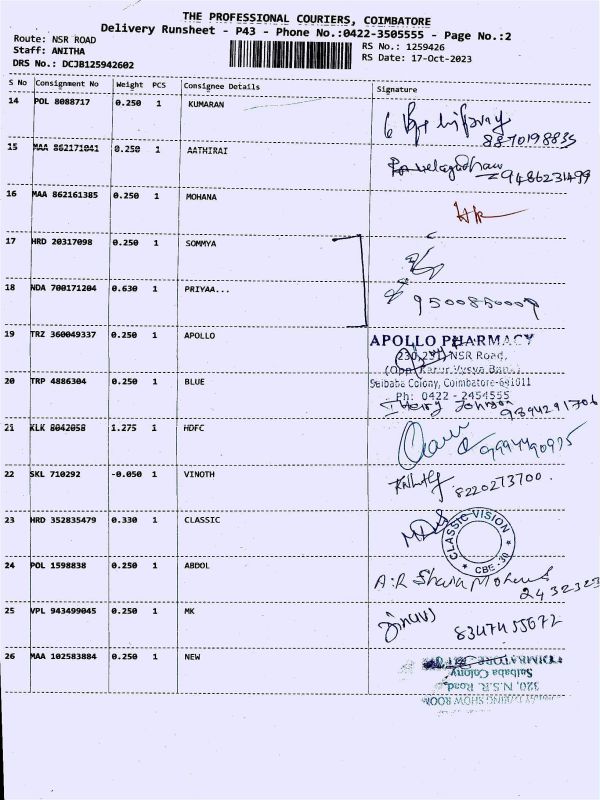 THE PROFESSIONAL COURIERS, COIMBATORE
Delivery Runsheet - P43 - Phone No.:0422-3505555 - Page No.:2
Route: NSR ROAD RS No.: 1259426
Staff: ANITHA RS Date: 17-Oct-2023
DRS No.: DCJB125942602
S No Consignment No Weight PCS Consignee Details Signature
14 POL 8088717 0.250 1 KUMARAN
8870198835
15 MAA 862171041 0.250 1 AATHIRAI
9486231499
16 MAA 862161385 0.250 1 MOHANA
17 HRD 20317098 0.250 1 SOMMYA
18 NDA 700171204 0.630 1 PRIYAA...
9500850009
19 TRZ 360049337 0.250 1 APOLLO APOLLO PHARMACY
NSR Road,
(Opp. Karur Vysya Bank)
20 TRP 4886304 0.250 1 BLUE Saibaba Colony, Coimbatore-641011
Ph: 0422 - 2454555
Johnson 9894291706
21 KLK 8042058 1.275 1 HDFC
22 SKL 710292 -0.050 1 VINOTH
8220273700.
23 HRD 352835479 0.330 1 CLASSIC CLASSIC VISION
CBE-30
24 POL 1598838 0.250 1 ABDOL
A.R
2432323
25 VPL 943499045 0.250 1 MK
8347455672
26 MAA 102583884 0.250 1 NEW
COIMBATORE
Saibaba Colony
320, N.S.R. Road,
SHOW ROOM